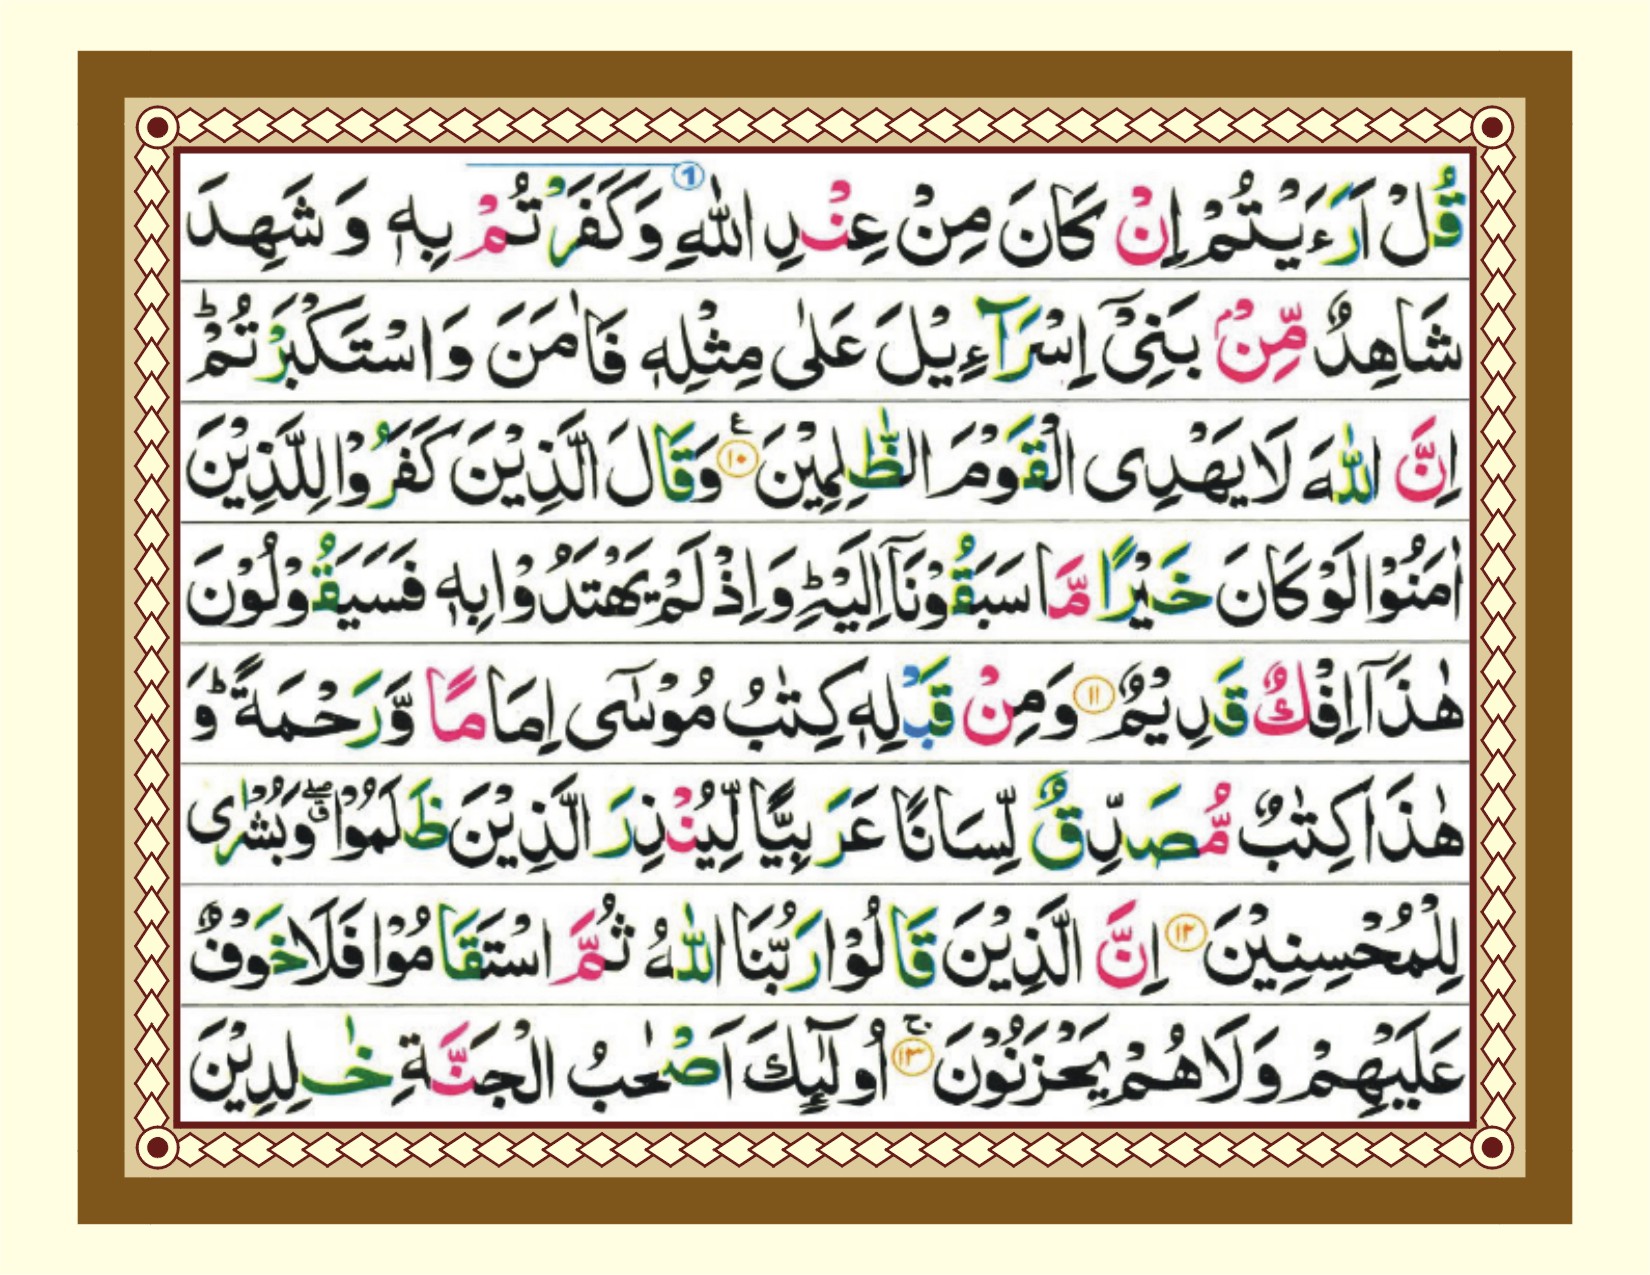 قُلْ اَرَءَيْتُمْ اِنْ كَانَ مِنْ عِنْدِ اللّٰهِ وَكَفَرْتُمْ بِهٖ وَشَهِدَ
شَاهِدٌ مِّنْۢ بَنِیْۤ اِسْرَآءِيْلَ عَلٰی مِثْلِهٖ فَاٰمَنَ وَاسْتَكْبَرْتُمْ ؕ
اِنَّ اللّٰهَ لَا يَهْدِی الْقَوْمَ الظّٰلِمِيْنَ ۱۰ وَقَالَ الَّذِيْنَ كَفَرُوْا لِلَّذِيْنَ
اٰمَنُوْا لَوْ كَانَ خَيْرًا مَّا سَبَقُوْنَاۤ اِلَيْهِ ؕ وَاِذْ لَمْ يَهْتَدُوْا بِهٖ فَسَيَقُوْلُوْنَ
هٰذَاۤ اِفْكٌ قَدِيْمٌ ۱۱ وَمِنْ قَبْلِهٖ كِتٰبُ مُوْسٰۤی اِمَامًا وَّرَحْمَةً ؕ وَ
هٰذَا كِتٰبٌ مُّصَدِّقٌ لِّسَانًا عَرَبِيًّا لِّيُنْذِرَ الَّذِيْنَ ظَلَمُوْا ۖۗ وَبُشْرٰی
لِلْمُحْسِنِيْنَ ۱۲ اِنَّ الَّذِيْنَ قَالُوْا رَبُّنَا اللّٰهُ ثُمَّ اسْتَقَامُوْا فَلَا خَوْفٌ
عَلَيْهِمْ وَلَا هُمْ يَحْزَنُوْنَ ۱۳ۚ اُولٰٓئِكَ اَصْحٰبُ الْجَنَّةِ خٰلِدِيْنَ